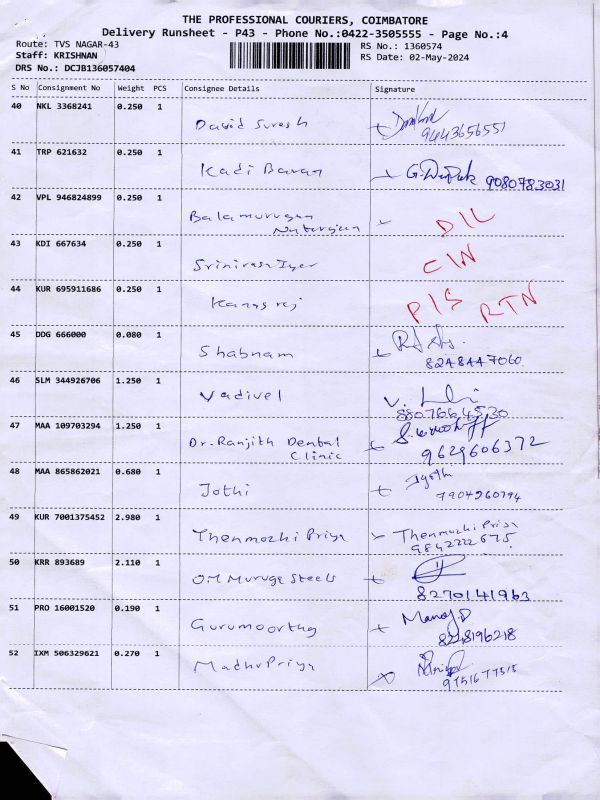 THE PROFESSIONAL COURIERS, COIMBATORE
Delivery Runsheet - P43 - Phone No.:0422-3505555 - Page No.:4
Route: TVS NAGAR-43
Staff: KRISHNAN
DRS No.: DCJB136057404
RS No.: 1360574
RS Date: 02-May-2024
S No Consignment No Weight PCS Consignee Details Signature
40 NKL 3368241 0.250 1
David Suresh
9443656551
41 TRP 621632 0.250 1
Kadi Bavan G. Deepak 9080783031
42 VPL 946824899 0.250 1
Balamurugan
Natarajan
D/L
43 KDI 667634 0.250 1
Srinivasa Iyer C/N
44 KUR 695911686 0.250 1
Kanagraj P/S RTN
45 DDG 666000 0.080 1
Shabnam
8248447060
46 SLM 344926706 1.250 1
Vadivel V.
8807664530
47 MAA 109703294 1.250 1
Dr. Ranjith Dental
Clinic
9629606372
48 MAA 865862021 0.680 1
Jothi Jyothi
7904960794
49 KUR 7001375452 2.980 1
Thenmozhi Priya Thenmozhi Priya
9842222675
50 KRR 893689 2.110 1
OM Muruga Steels
8270141963
51 PRO 16001520 0.190 1
Gurumoorthy Manoj D
8248196218
52 IXM 506329621 0.270 1
Madhu Priya
9751677515